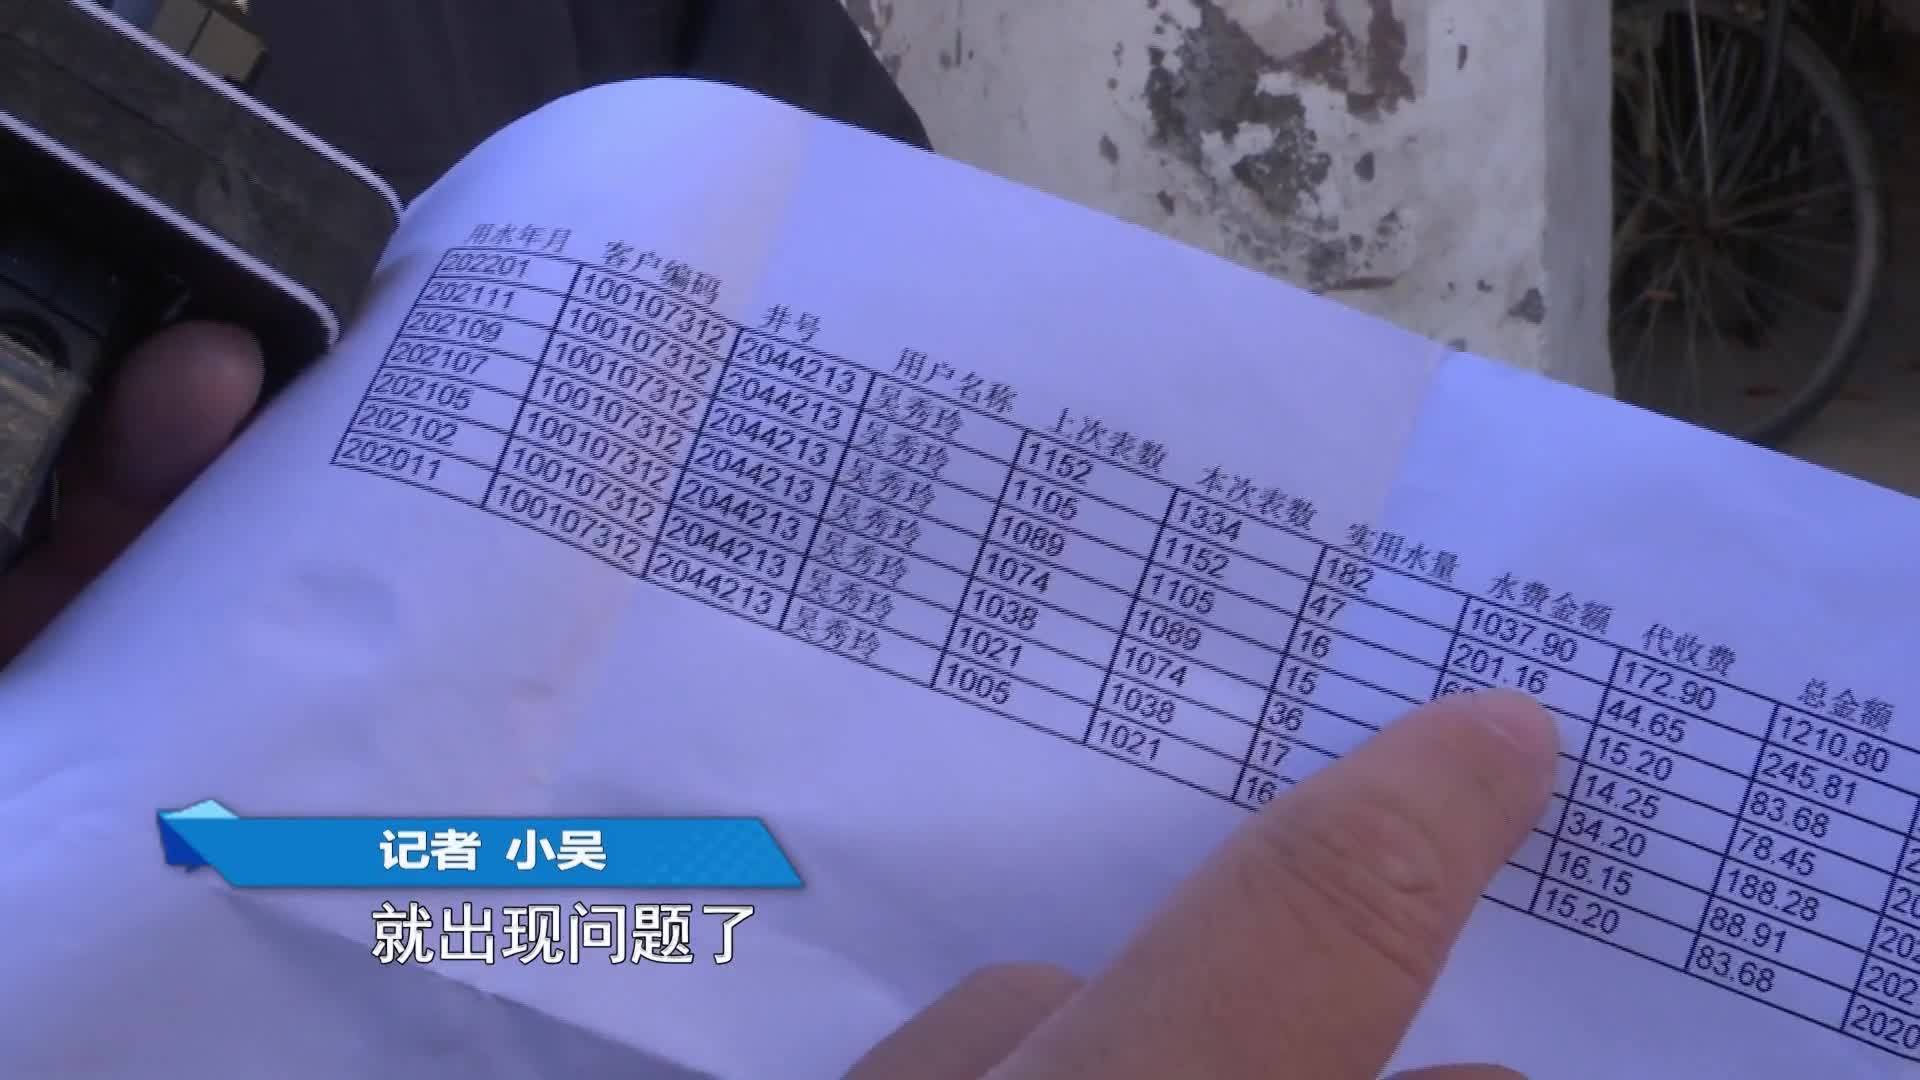 用水年月 客户编码 井号 用户名称 上次表数 本次表数 实用水量 水费金额 代收费 总金额
202201 100107312 2044213 吴秀玲 1152 1334 182 1037.90 172.90 1210.80
202111 100107312 2044213 吴秀玲 1105 1152 47 201.16 44.65 245.81
202109 100107312 2044213 吴秀玲 1089 1105 16 15.20 83.68
202107 100107312 2044213 吴秀玲 1074 1089 15 14.25 78.45
202105 100107312 2044213 吴秀玲 1038 1074 36 34.20 188.28
202102 100107312 2044213 吴秀玲 1021 1038 17 16.15 88.91
202011 100107312 2044213 吴秀玲 1005 1021 16 15.20 83.68
记者 小吴
就出现问题了